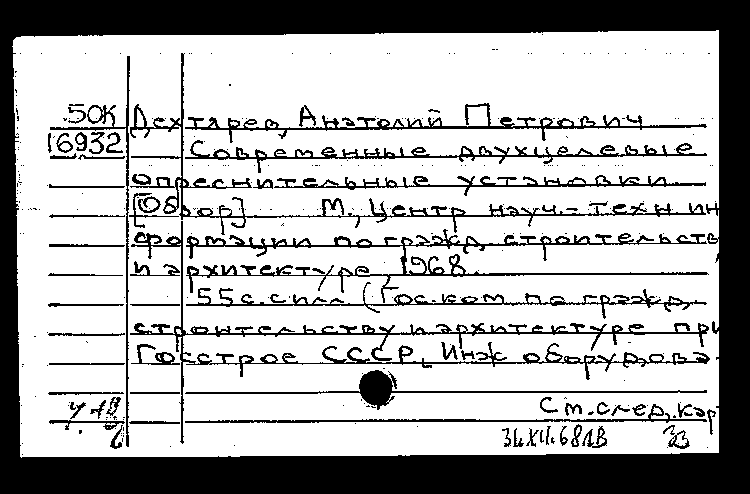 50К Дехтярев, Анатолий Петрович
16932 Современные двухцелевые
опреснительные установки
[Обзор]. М., Центр науч.-техн. ин
формации по гражд. строительств
и архитектуре, 1968.
55 с. с илл. (Гос. ком. по гражд.
строительству и архитектуре при
Госстрое СССР. Инж. оборудова-
См. след. кар
31.XII.68